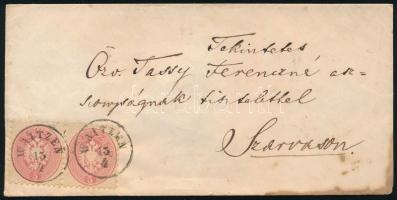 Tekintetes
Özv. Tassy Ferenczné asz-
szonyságnak tisztelettel
Szarvason.
WAITZEN
15
4
WAITZEN
15
4